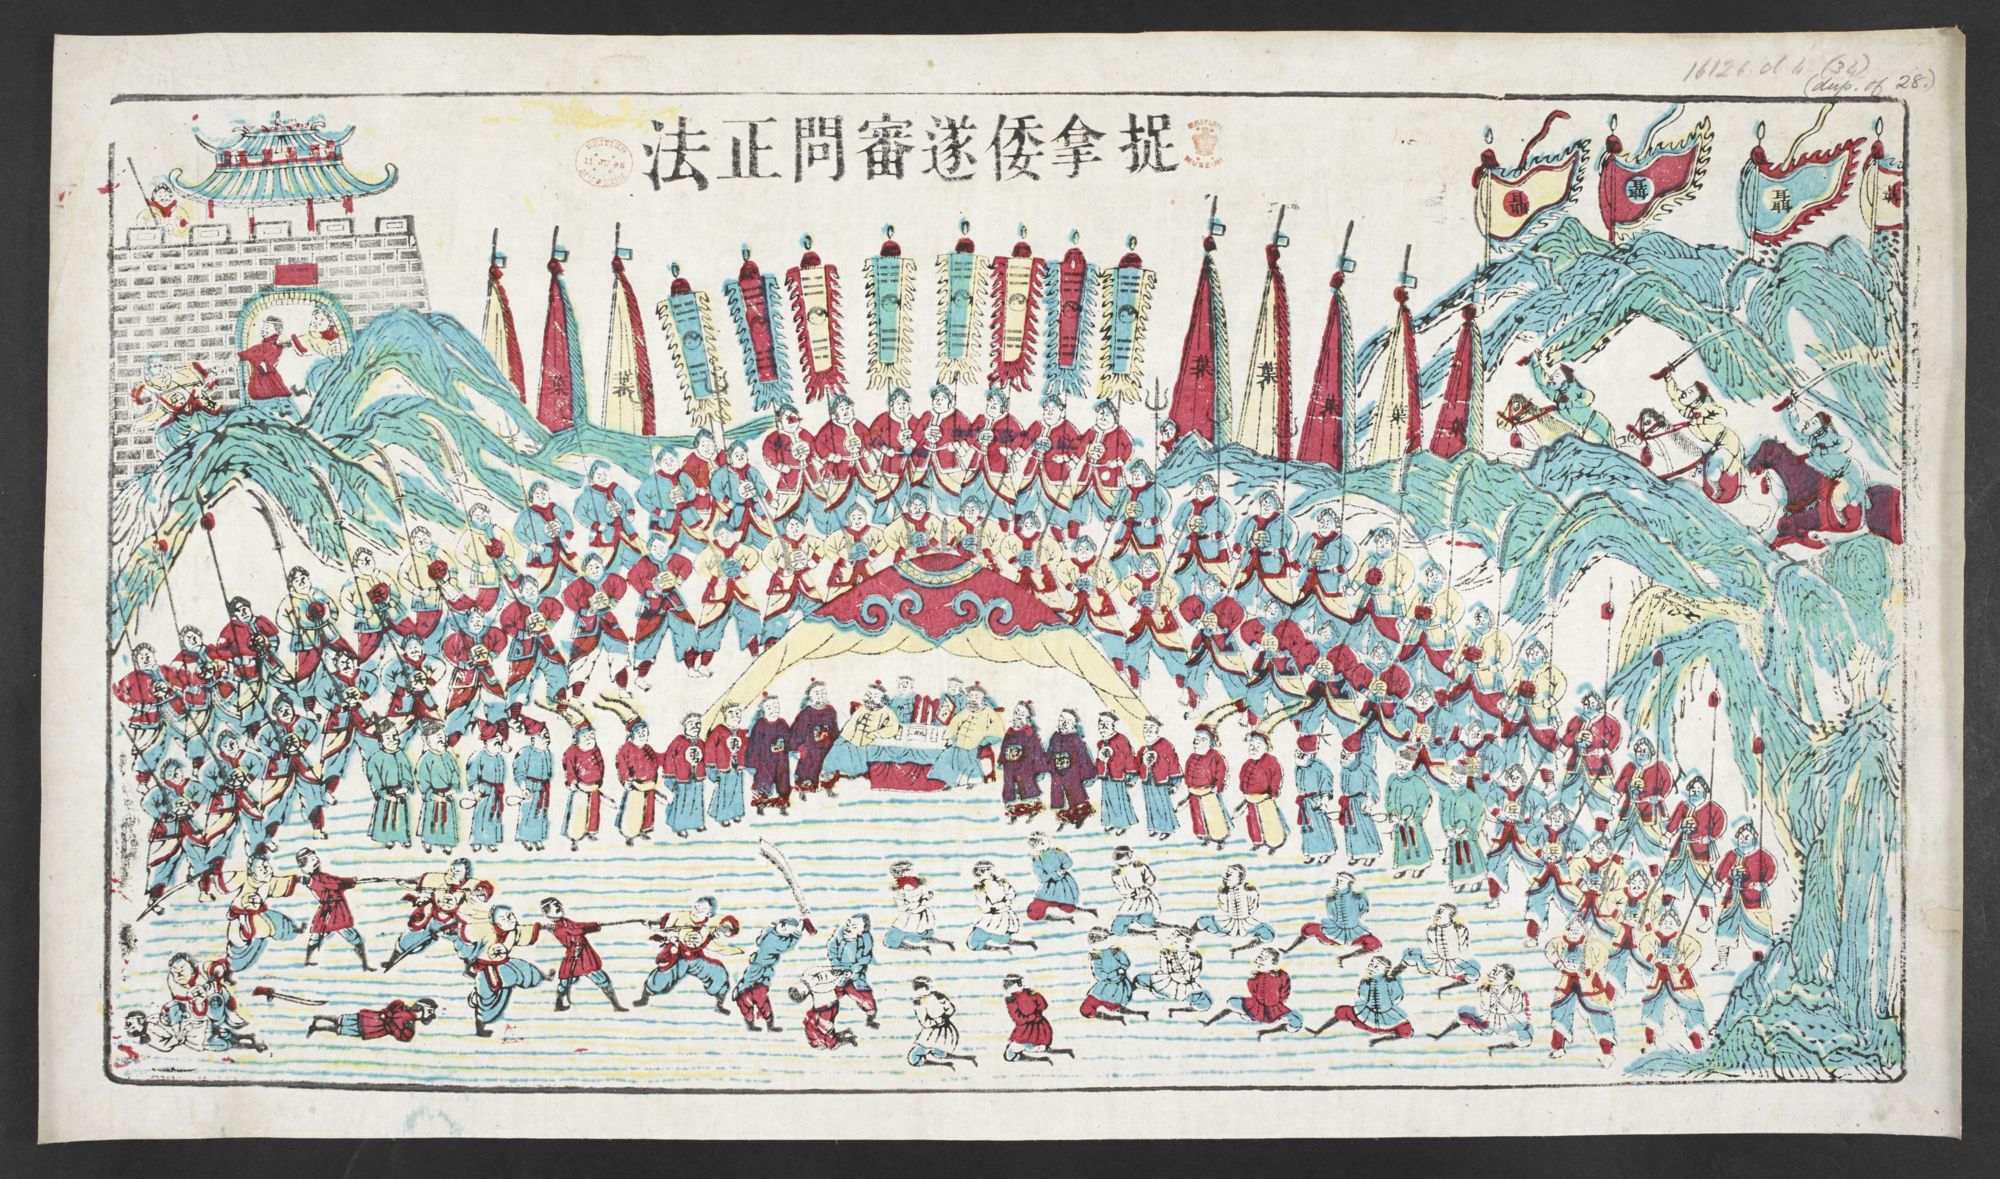 16126.d.4.(32)
(dup. of 28.)
捉拿倭遂審問正法
BRITISH MUSEUM
BRITISH
11 JU 95
MUSEUM
聶 聶 聶
葉 葉
葉 葉 葉 葉 葉
勇 勇